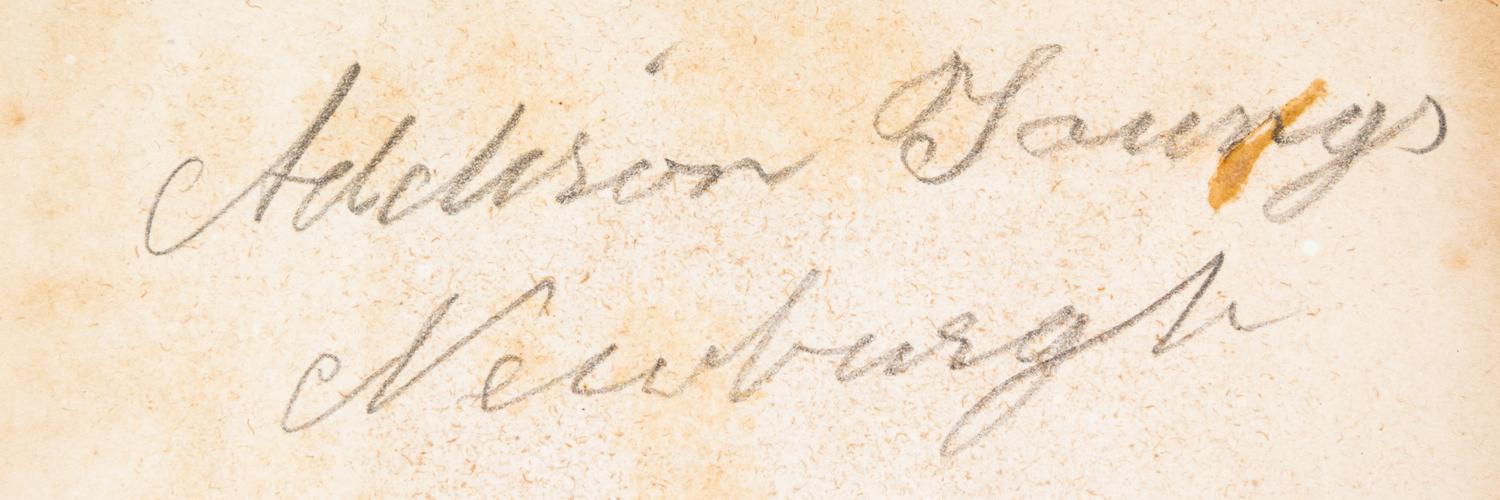 Addison Youngs
Newburgh